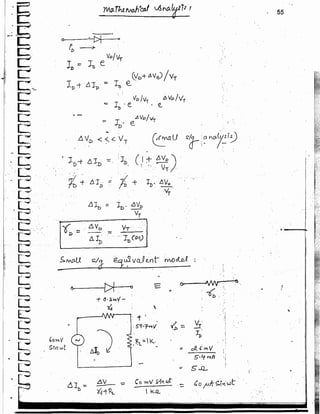 Mathematical Analysis :
55
i_D →
I_D = I_o e^{V_D/V_T}
I_D + ΔI_D = I_o e^{(V_D + ΔV_D)/V_T}
= I_o · e^{V_D/V_T} · e^{ΔV_D/V_T}
= I_D · e^{ΔV_D/V_T}
ΔV_D <<< V_T (small s/g analysis)
I_D + ΔI_D = I_D (1 + ΔV_D/V_T)
I_D + ΔI_D = I_D + I_D · ΔV_D/V_T
ΔI_D = I_D · ΔV_D/V_T
r_D = ΔV_D/ΔI_D = V_T/I_D(DC)
Small s/g equivalent model :
≡
r_D
+ 0.3mV −
r_d
+
59.7mV
R_L = 1K
−
60mV
Sin ωt
ΔI_D
r_D = V_T/I_D
= 26 mV/5.4 mA
= 5 Ω
ΔI_D = ΔV/(r_d + R_L) = 60 mV Sin ωt/1 kΩ = 60 μA Sin ωt